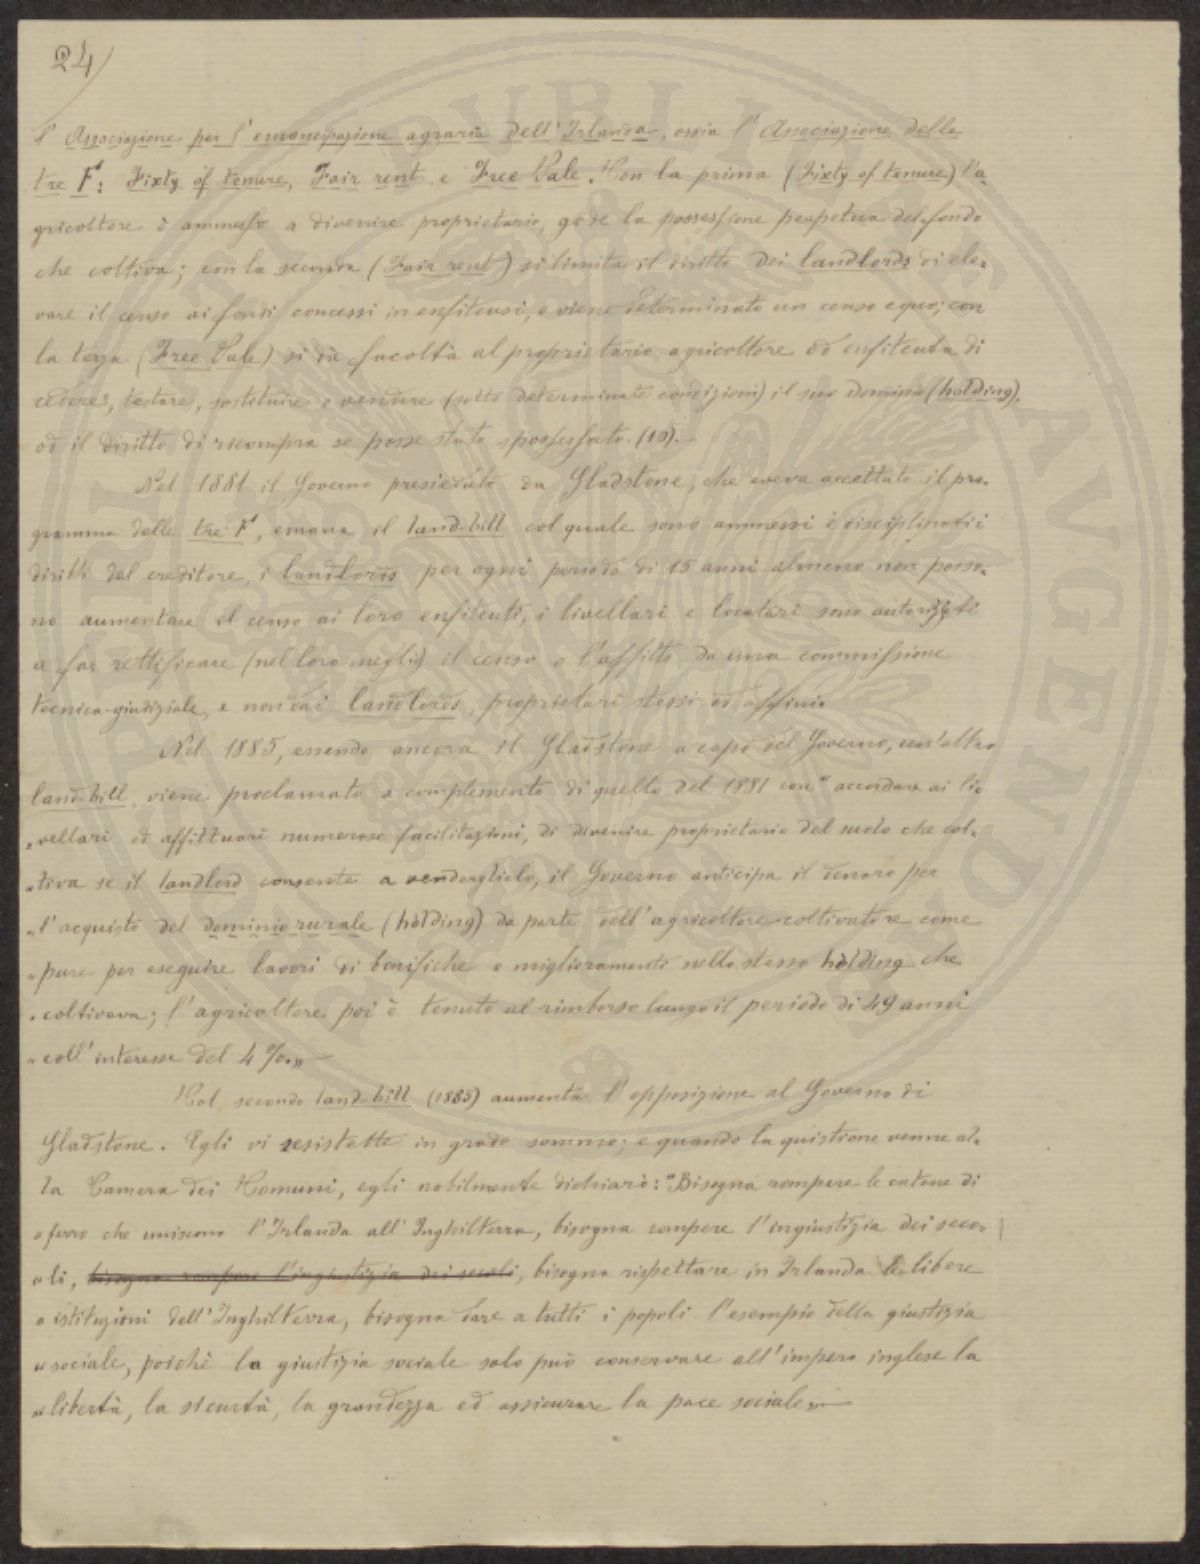 24)
l'Associazione per l'emancipazione agraria dell'Irlanda, ossia l'Associazione delle
tre F: Fixty of tenure, Fair rent e Free Sale. Con la prima (Fixty of tenure) l'a=
gricoltore è ammesso a divenire proprietario, gode la possessione perpetua del fondo
che coltiva; con la seconda (Fair rent) si limita il diritto dei landlords di ele=
vare il censo ai fondi concessi in enfiteusi, e viene determinato un censo equo; con
la terza (Free Sale) si dà facoltà al proprietario agricoltore od enfiteuta di
cedere, testare, sostituire o vendere (sotto determinate condizioni) il suo dominio (holding),
od il diritto di ricompra se fosse stato spossessato. (10).—
Nel 1881 il Governo presieduto da Gladstone, che aveva accettato il pro=
gramma delle tre F, emana il land-bill col quale sono ammessi e disciplinati i
diritti del creditore, i landlords per ogni periodo di 15 anni almeno non posso=
no aumentare il censo ai loro enfiteuti, i livellari e locatari sono autorizzati
a far rettificare (nel loro meglio) il censo o l'affitto da una commissione
tecnica-giudiziale, e non dai landlords, proprietari stessi od affini.
Nel 1885, essendo ancora il Gladstone a capo del Governo, un'altro
land-bill viene proclamato a complemento di quello del 1881 con "accordare ai li=
"vellari ed affittuari numerose facilitazioni, di divenire proprietario del suolo che col=
"tiva se il landlord consente a venderglielo, il Governo anticipa il denaro per
"l'acquisto del dominio rurale (holding) da parte dell'agricoltore coltivatore come
"pure per eseguire lavori di bonifiche e miglioramenti nello stesso holding che
"coltivava; l'agricoltore poi è tenuto al rimborso lungo il periodo di 49 anni
"coll'interesse del 4 %."—
Col secondo land-bill (1885) aumenta l'opposizione al Governo di
Gladstone. Egli vi resistette in grado sommo; e quando la quistione venne al=
la Camera dei Comuni, egli nobilmente dichiarò: "Bisogna rompere le catene di
"ferro che uniscono l'Irlanda all'Inghilterra, bisogna rompere l'ingiustizia dei seco=
"li, bisogna rompere l'ingiustizia dei secoli, bisogna rispettare in Irlanda le libere
"istituzioni dell'Inghilterra, bisogna dare a tutti i popoli l'esempio della giustizia
"sociale, poichè la giustizia sociale solo può conservare all'impero inglese la
"libertà, la sicurtà, la grandezza ed assicurare la pace sociale"—